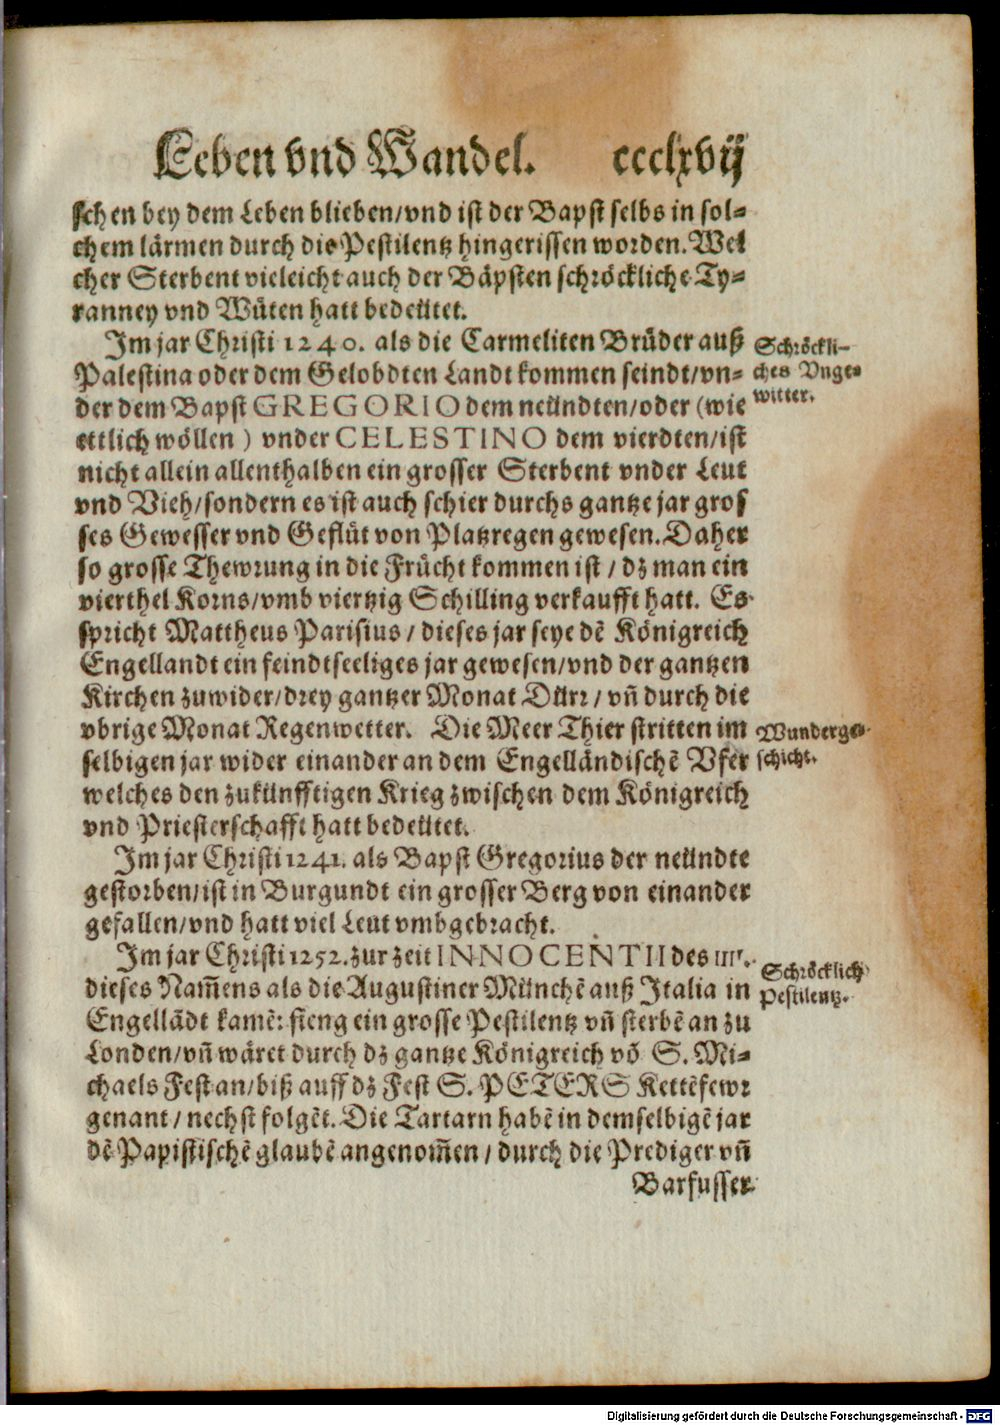 Leben vnd Wandel. ccclxvij
schen bey dem Leben blieben/vnd ist der Bapst selbs in sol-
chem lärmen durch die Pestilentz hingerissen worden. Wel
cher Sterbent vieleicht auch der Bäpsten schröckliche Ty-
ranney vnd Wüten hatt bedeütet.
Im jar Christi 1240. als die Carmeliten Brüder auß
Schröckli-
Palestina oder dem Gelobdten Landt kommen seindt/vn-
ches Vnge-
der dem Bapst GREGORIO dem neündten/oder (wie
witter.
ettlich wöllen) vnder CELESTINO dem vierdten/ist
nicht allein allenthalben ein grosser Sterbent vnder Leut
vnd Vieh/sondern es ist auch schier durchs gantze jar gros
ses Gewesser vnd Geflüt von Platzregen gewesen. Daher
so grosse Thewrung in die Frücht kommen ist / dz man ein
vierthel Korns/vmb viertzig Schilling verkaufft hatt. Es
spricht Mattheus Parisius / dieses jar seye dē Königreich
Engellandt ein feindtseeliges jar gewesen/vnd der gantzen
Kirchen zuwider/drey gantzer Monat Dürr / vn̄ durch die
vbrige Monat Regenwetter. Die Meer Thier stritten im
Wunderge-
selbigen jar wider einander an dem Engelländischē Vfer
schicht.
welches den zukünfftigen Krieg zwischen dem Königreich
vnd Priesterschafft hatt bedeütet.
Im jar Christi 1241. als Bapst Gregorius der neündte
gestorben/ist in Burgundt ein grosser Berg von einander
gefallen/vnd hatt viel Leut vmbgebracht.
Im jar Christi 1252. zur zeit INNOCENTII des IIII.
Schröcklich
dieses Nam̄ens als die Augustiner Münchē auß Italia in
Pestilentz.
Engellādt kamē: fieng ein grosse Pestilentz vn̄ sterbē an zu
Londen/vn̄ wäret durch dz gantze Königreich vō S. Mi-
chaels Fest an/biß auff dz Fest S. PETERS Kettēfewr
genant / nechst folgēt. Die Tartarn habē in demselbigē jar
dē Papistischē glaubē angenom̄en / durch die Prediger vn̄
Barfusser
Digitalisierung gefördert durch die Deutsche Forschungsgemeinschaft - DFG